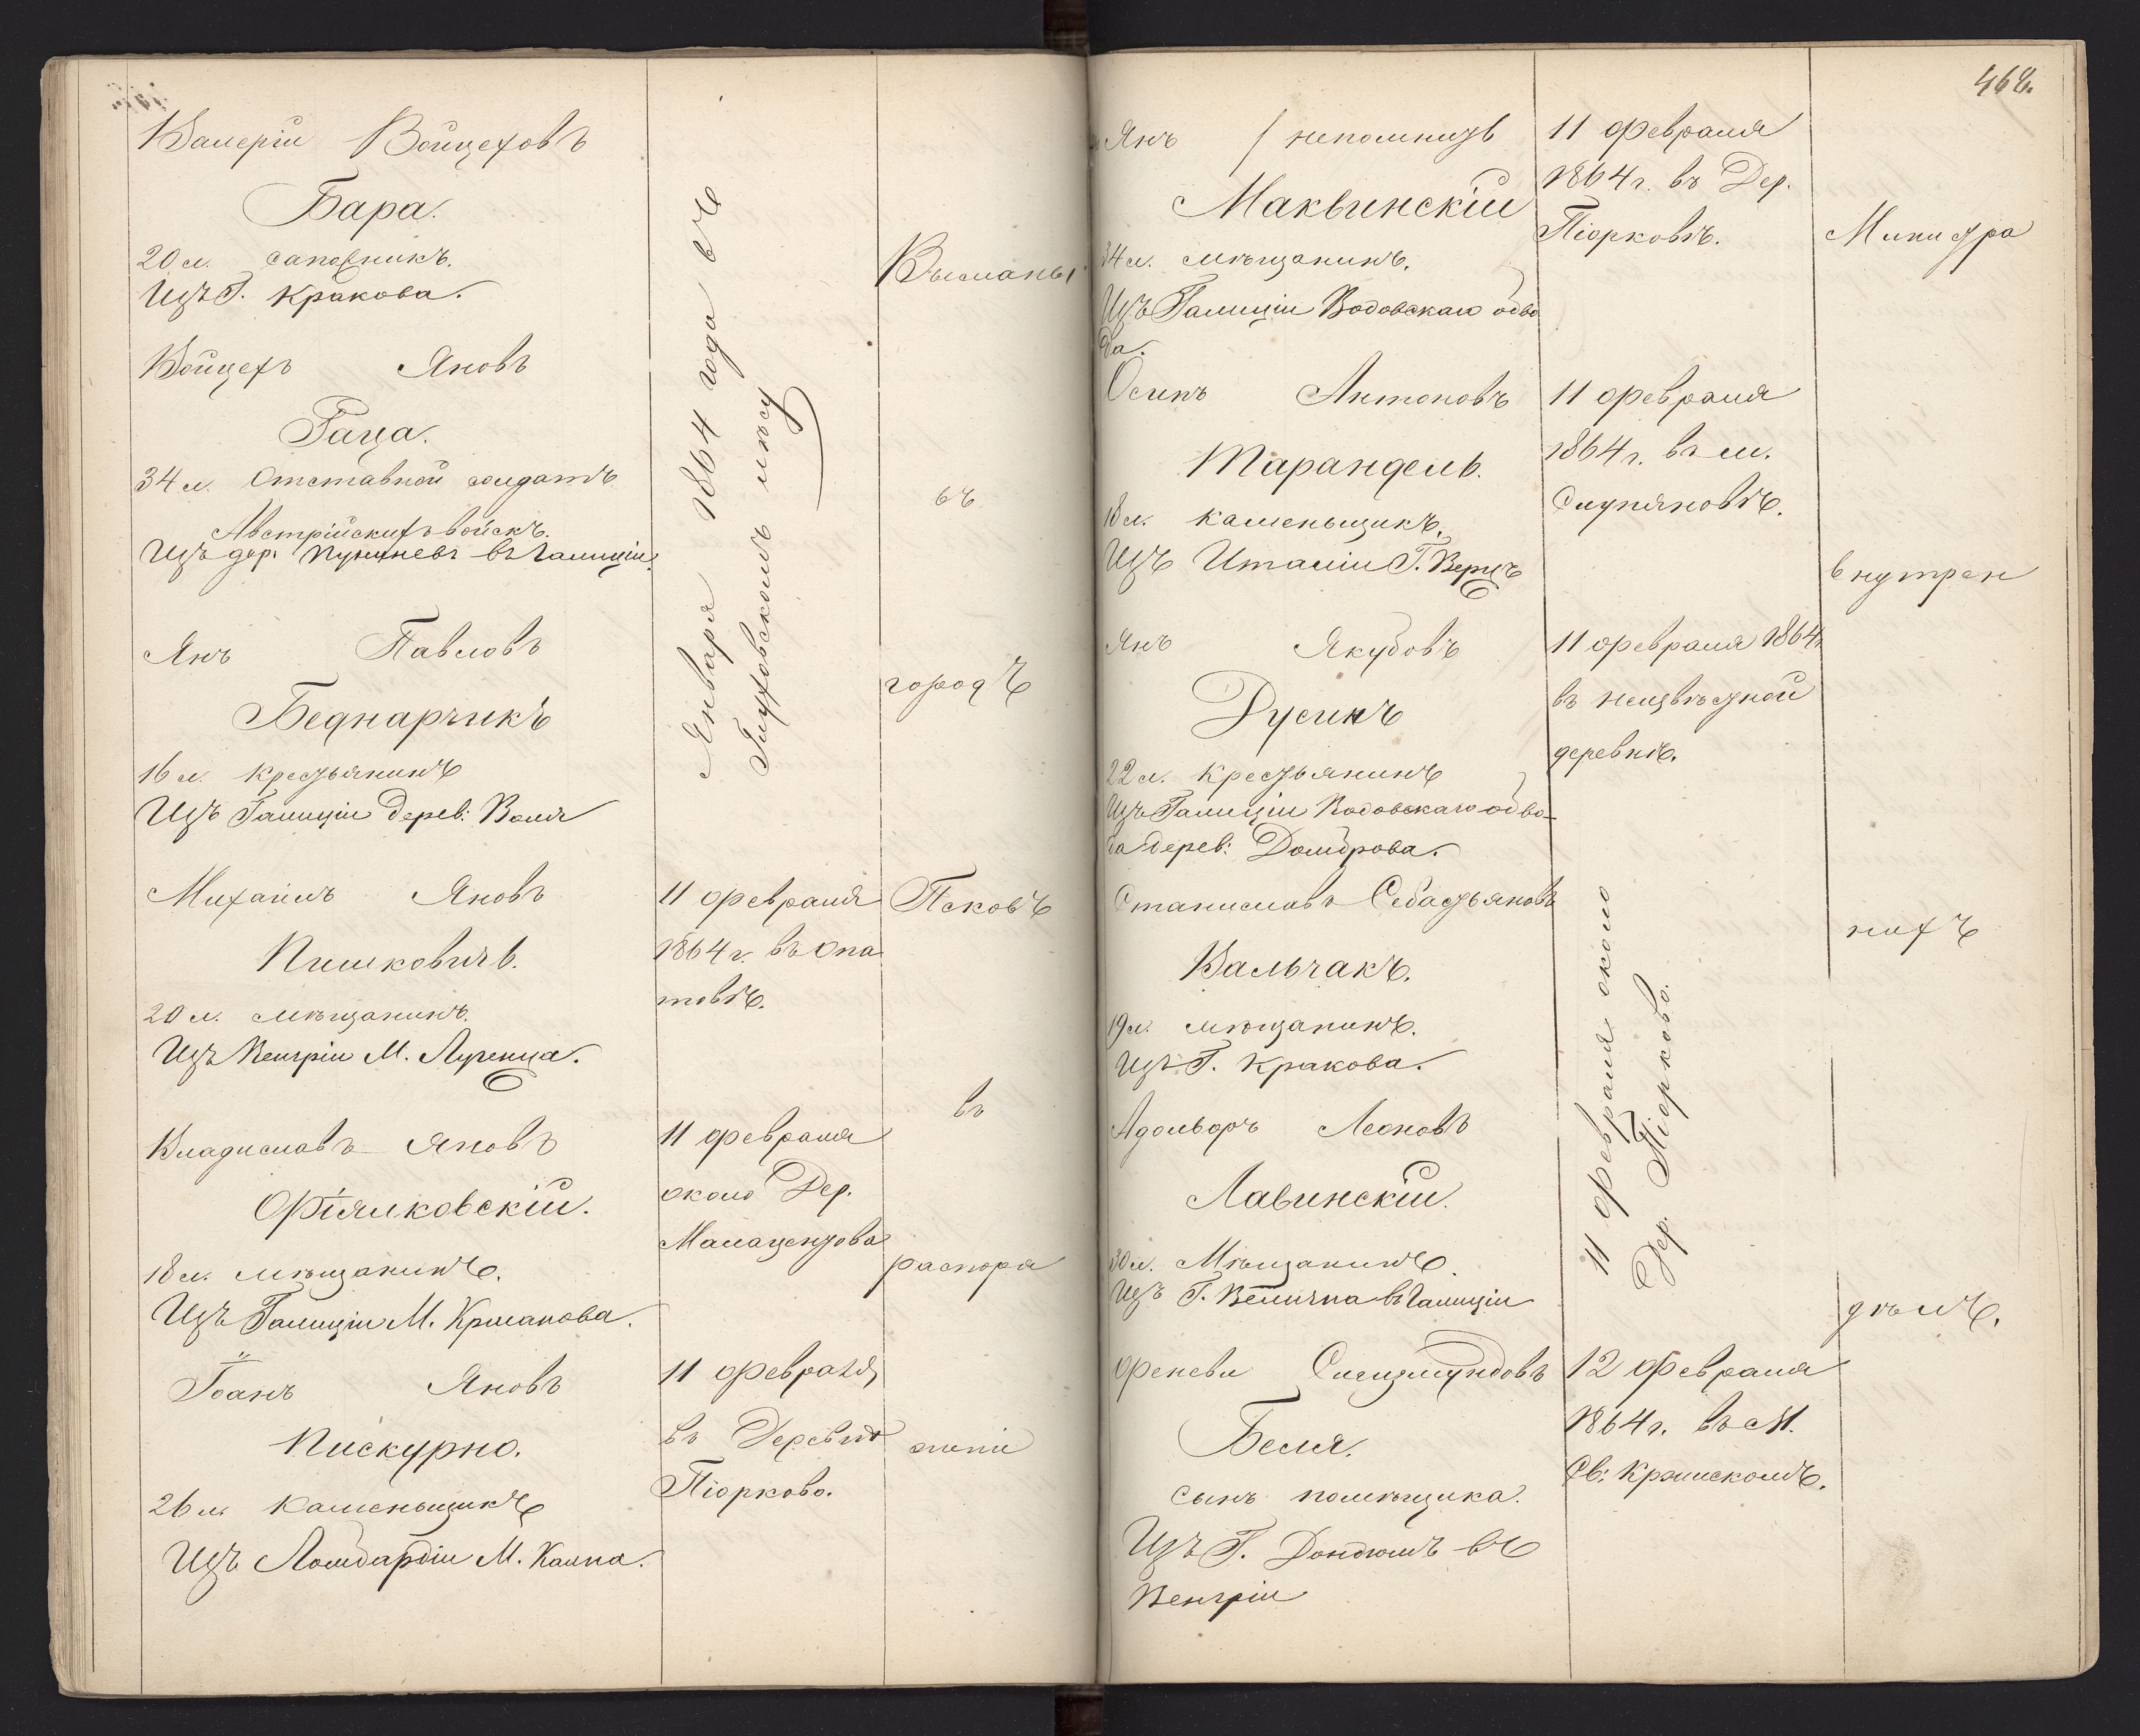 Валерій Войцеховъ
Бара.
20 л. сапожникъ.
Изъ Г. Кракова.
Войцехъ Яновъ
Гаца.
34 л. Отставной солдатъ
Австрійскихъ войскъ.
Изъ дер. въ Галиціи.
Янъ Павловъ
Беднарчикъ
16 л. крестьянинъ
Изъ Галиціи дерев: Воля
Января 1864 года въ
лѣсу
Михаилъ Яновъ
Пишковичъ.
20 л. мѣщанинъ.
Изъ Венгріи М. Лученца.
11 февраля
1864 г. въ Опа
товѣ.
Владиславъ Яновъ
Фіялковскій.
18 л. мѣщанинъ.
Изъ Галиціи М.
11 февраля
около Дер.
Іоанъ Яновъ
Пискурно.
26 л. каменьщикъ
Изъ Ломбардіи М. Канпа.
11 февраля
въ Деревнѣ
Піорково.
Высланы
въ
городъ
Псковъ
въ
распоря
женіе
468.
Янъ / непомнитъ
Маквинскій
34 л. мѣщанинъ.
Изъ Галиціи Вадовскаго обво
да.
11 февраля
1864 г. въ Дер.
Піорковѣ.
Осипъ Антоновъ
Тарандель.
18 л. каменьщикъ.
Изъ Италіи Г.
11 февраля
1864 г. въ м.
Слупяновѣ.
Янъ Якубовъ
Русинъ
22 л. крестьянинъ
Изъ Галиціи Вадовскаго обво-
да дерев: Домброва.
11 февраля 1864 г
въ неизвѣстной
деревнѣ.
Станиславъ Себастьяновъ
Вальчакъ.
19 л. мѣщанинъ.
Изъ Г. Кракова.
Адольфъ Леоновъ
Лавинскій.
30 л. Мѣщанинъ.
Изъ Г. Величка въ Галиціи
11 февраля около
Дер. Піорково.
Сигизмундовъ
Беля.
сынъ помѣщика.
Изъ Г. въ
Венгріи
12 февраля
1864 г. въ М.
Св: Кржискомъ.
Министра
внутрен
нихъ
дѣлъ.